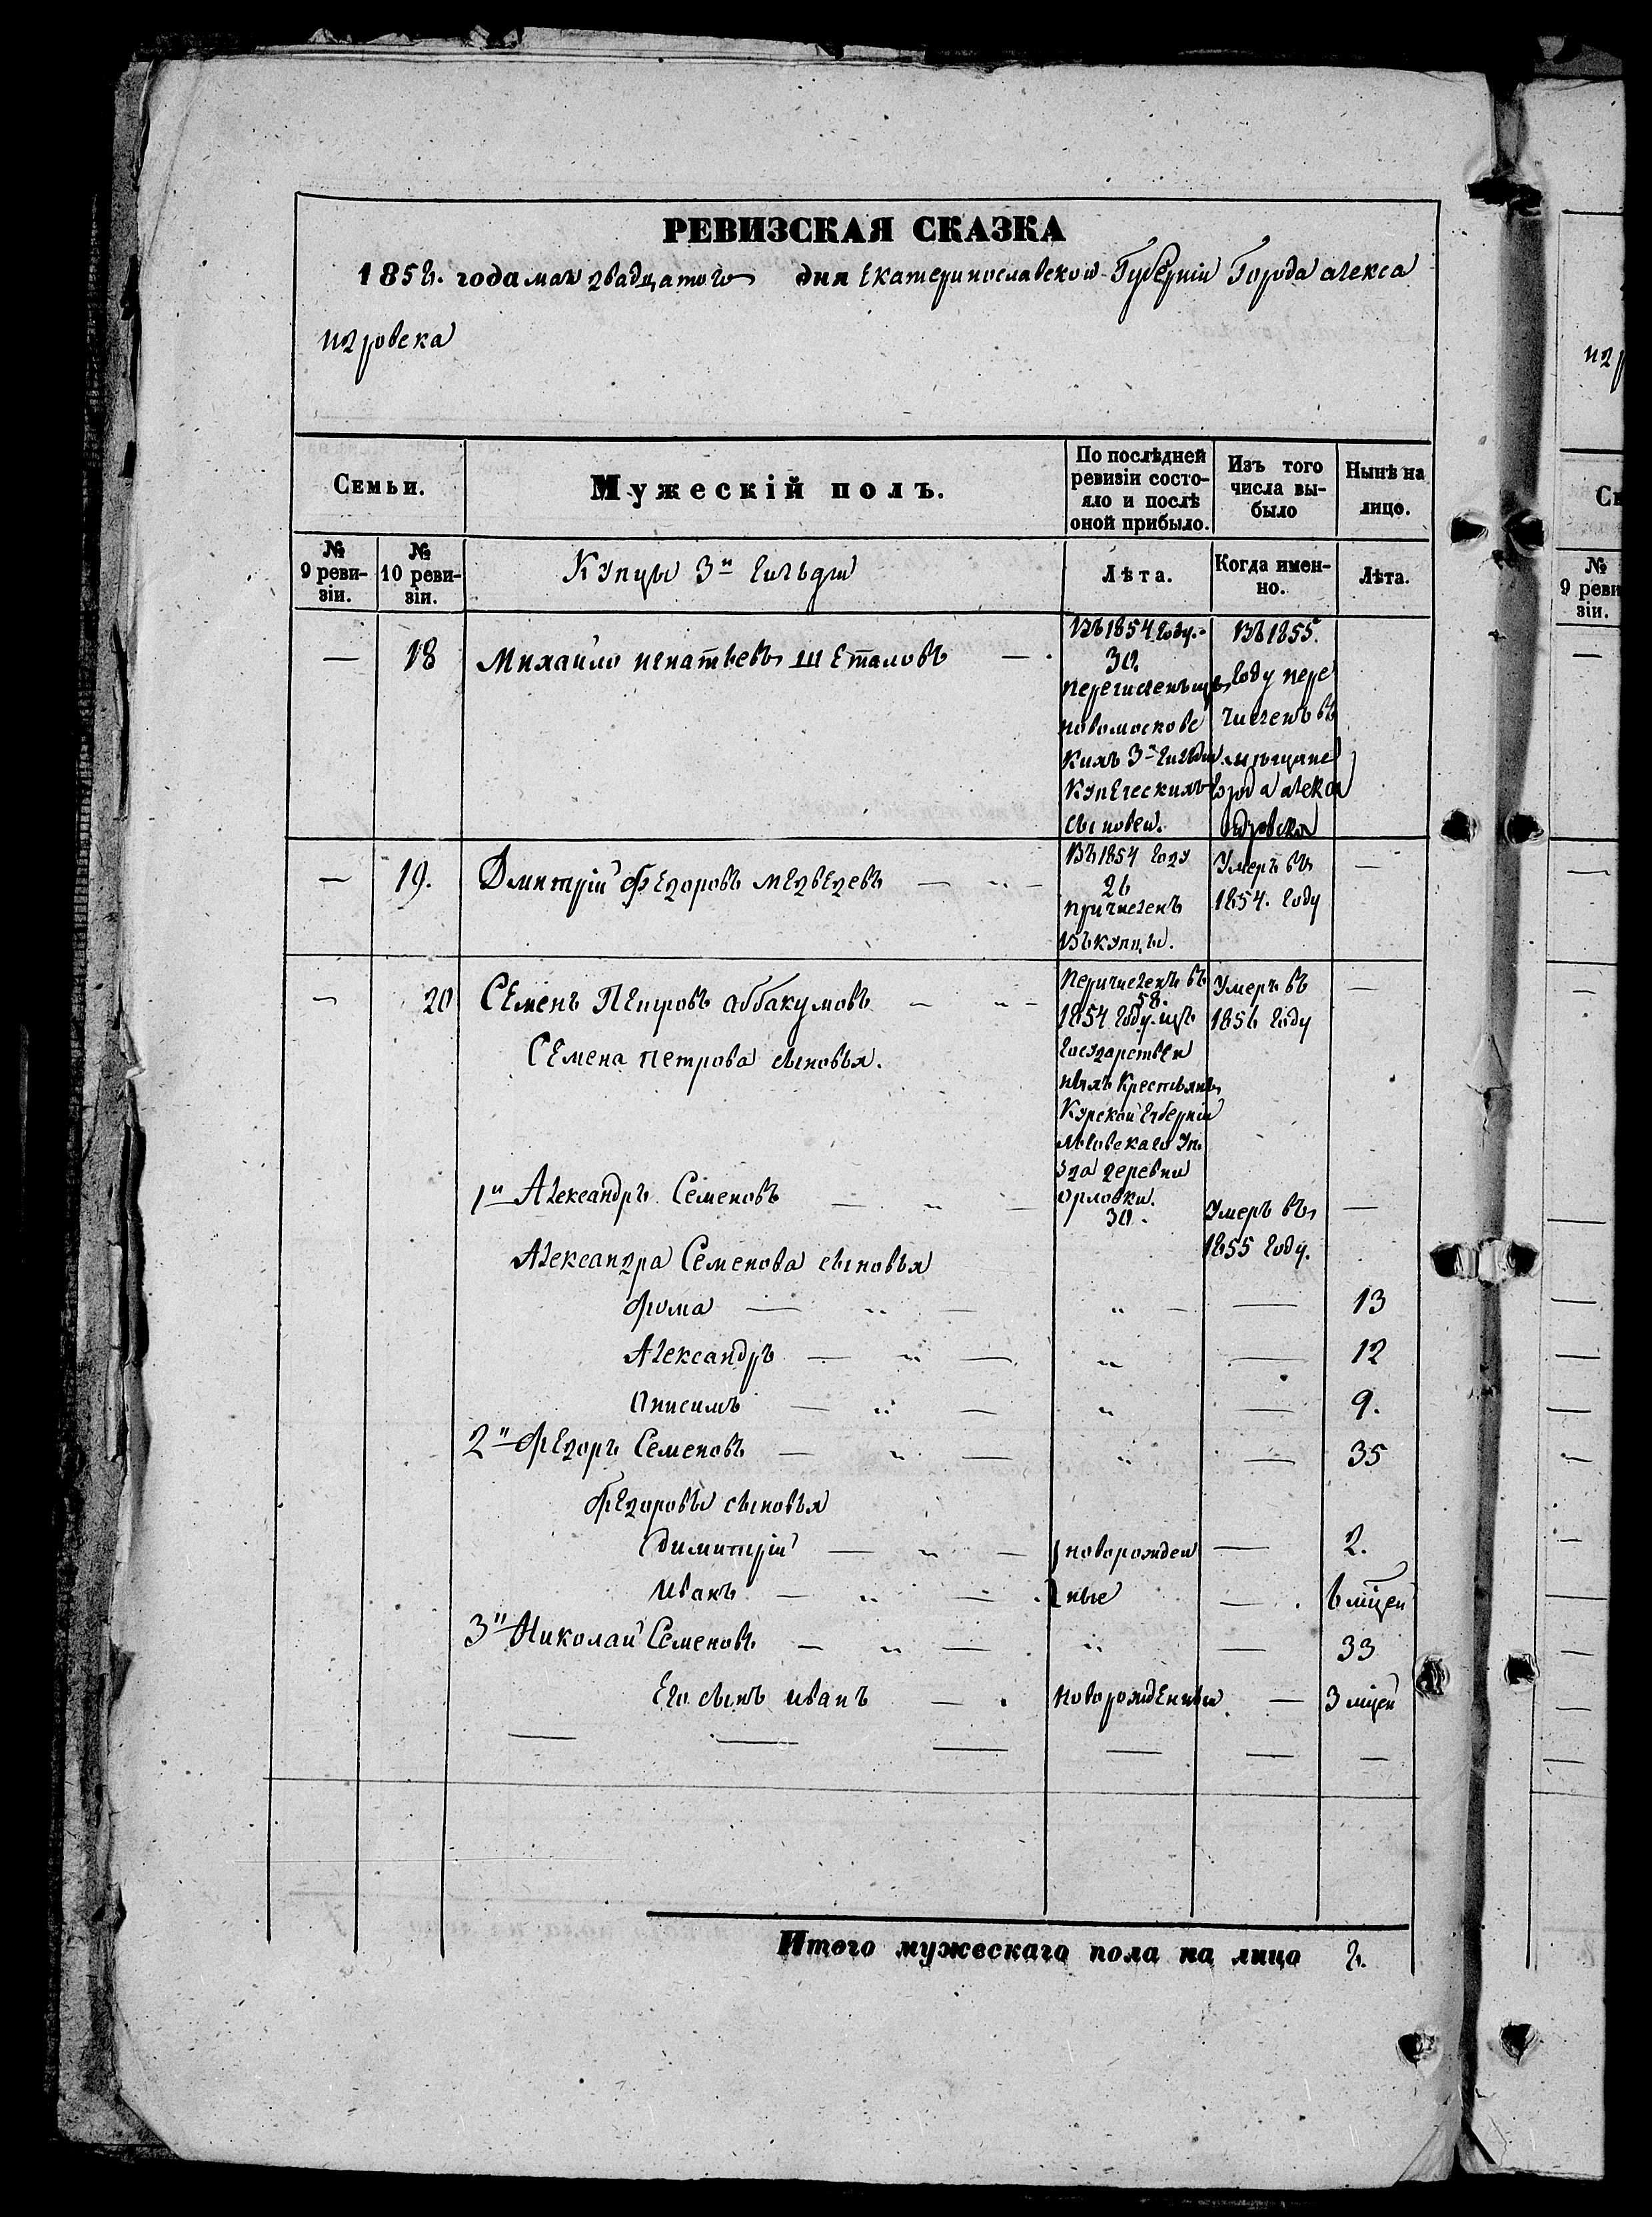 РЕВИЗСКАЯ СКАЗКА
1858. года мая двадцатого дня Екатеринославской Губерніи Города алекса
ндровска
Семьи.
Мужескій полъ.
По послѣдней ревизіи состо-
яло и послѣ
оной прибыло.
Изъ того
числа вы-
было
Нынѣ на
лицо.
№
9 реви-
зіи.
№
10 реви-
зіи.
Купцы 3й гильдіи
Лѣта.
Когда имен-
но.
Лѣта.
— 18 Михайло игнатьевъ —
Въ 1854 году.
30.
перечисленъ изъ
новомосковс
кихъ 3й гильдіи
купеческихъ
сыновей.
Въ 1855.
году пере
численъ въ
мѣщане
города алекса
ндровска
— 19. Дмитрій Федоровъ медведевъ — „ —
Въ 1854 году
26
причисленъ
въ купцы.
Умеръ въ
1854. году
—
— 20 Семенъ Петровъ аббакумовъ — „ —
Семена петрова сыновья.
перечисленъ въ
58.
1854 году изъ
государствен
ныхъ крестьянъ
Курской губерніи
Льговскаго уѣ
зда деревни
орловки.
Умеръ въ
1856 году
—
1й Александръ Семеновъ — „ — 30. Умеръ въ —
1855 году.
Александра Семенова сыновья
фома — „ — „ — — 13
Александръ — „ — „ — 12
Анисимъ — „ — „ — 9.
2й Федоръ Семеновъ — „ — „ — 35
федоровы сыновья
Димитрій — „ — новорожден — 2.
Иванъ — „ — ные — 6 мцей
3й Николай Семеновъ — „ — „ — 33
Его сынъ иванъ — . новорожденный — 3 мцей
— — — — — —
Итого мужескаго пола на лицо 8.
№
9 реви
зіи.